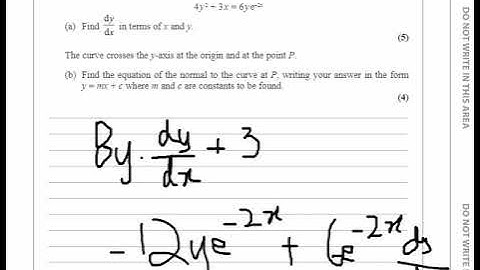 4y² + 3x = 6ye⁻²ˣ
(a) Find dy/dx in terms of x and y.
(5)
The curve crosses the y-axis at the origin and at the point P.
(b) Find the equation of the normal to the curve at P, writing your answer in the form
y = mx + c where m and c are constants to be found.
(4)
8y.dy/dx + 3
-12ye⁻²ˣ + 6e⁻²ˣ dy
DO NOT WRITE IN THIS AREA
DO NOT WRITE IN